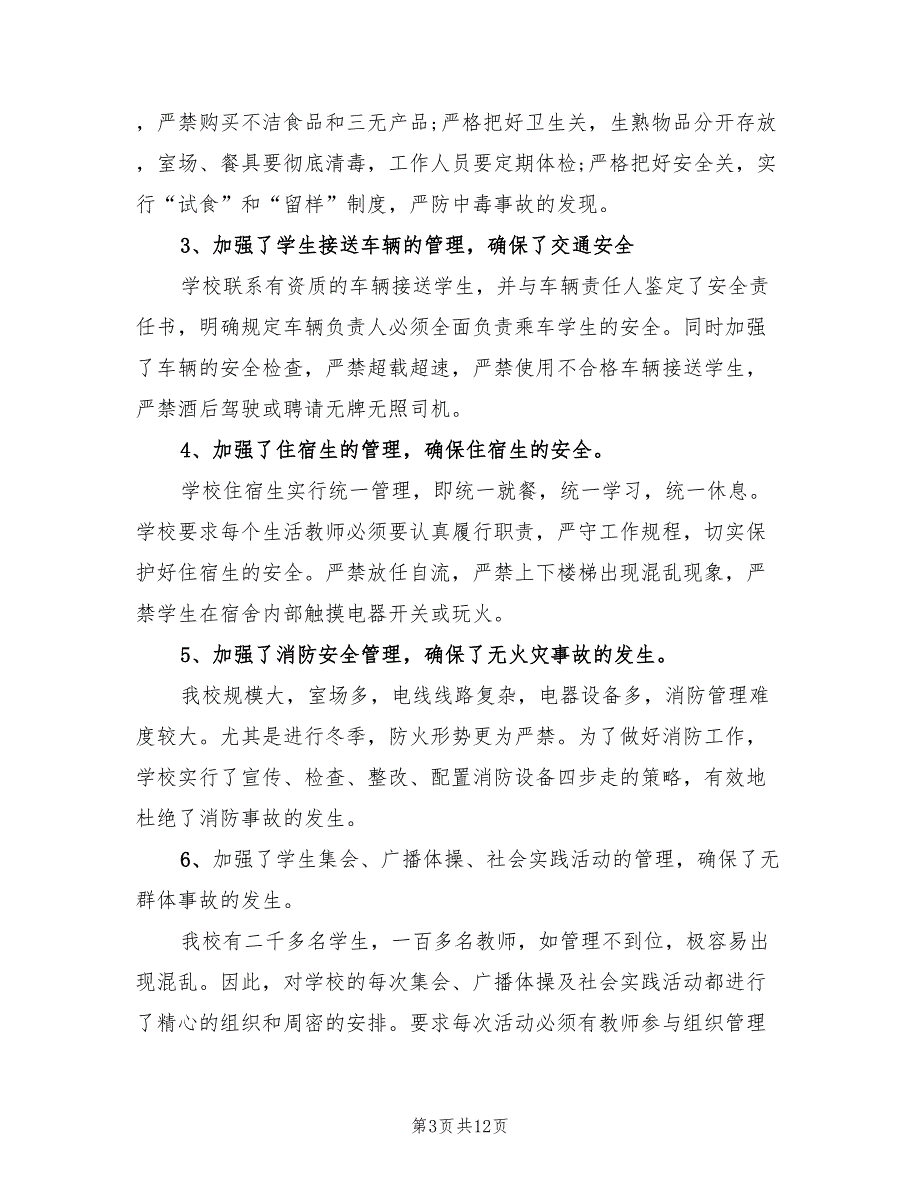 ，严禁购买不洁食品和三无产品;严格把好卫生关，生熟物品分开存放
，室场、餐具要彻底清毒，工作人员要定期体检;严格把好安全关，实
行“试食”和“留样”制度，严防中毒事故的发现。
3、加强了学生接送车辆的管理，确保了交通安全
学校联系有资质的车辆接送学生，并与车辆责任人鉴定了安全责
任书，明确规定车辆负责人必须全面负责乘车学生的安全。同时加强
了车辆的安全检查，严禁超载超速，严禁使用不合格车辆接送学生，
严禁酒后驾驶或聘请无牌无照司机。
4、加强了住宿生的管理，确保住宿生的安全。
学校住宿生实行统一管理，即统一就餐，统一学习，统一休息。
学校要求每个生活教师必须要认真履行职责，严守工作规程，切实保
护好住宿生的安全。严禁放任自流，严禁上下楼梯出现混乱现象，严
禁学生在宿舍内部触摸电器开关或玩火。
5、加强了消防安全管理，确保了无火灾事故的发生。
我校规模大，室场多，电线线路复杂，电器设备多，消防管理难
度较大。尤其是进行冬季，防火形势更为严禁。为了做好消防工作，
学校实行了宣传、检查、整改、配置消防设备四步走的策略，有效地
杜绝了消防事故的发生。
6、加强了学生集会、广播体操、社会实践活动的管理，确保了无
群体事故的发生。
我校有二千多名学生，一百多名教师，如管理不到位，极容易出
现混乱。因此，对学校的每次集会、广播体操及社会实践活动都进行
了精心的组织和周密的安排。要求每次活动必须有教师参与组织管理
第3页共12页